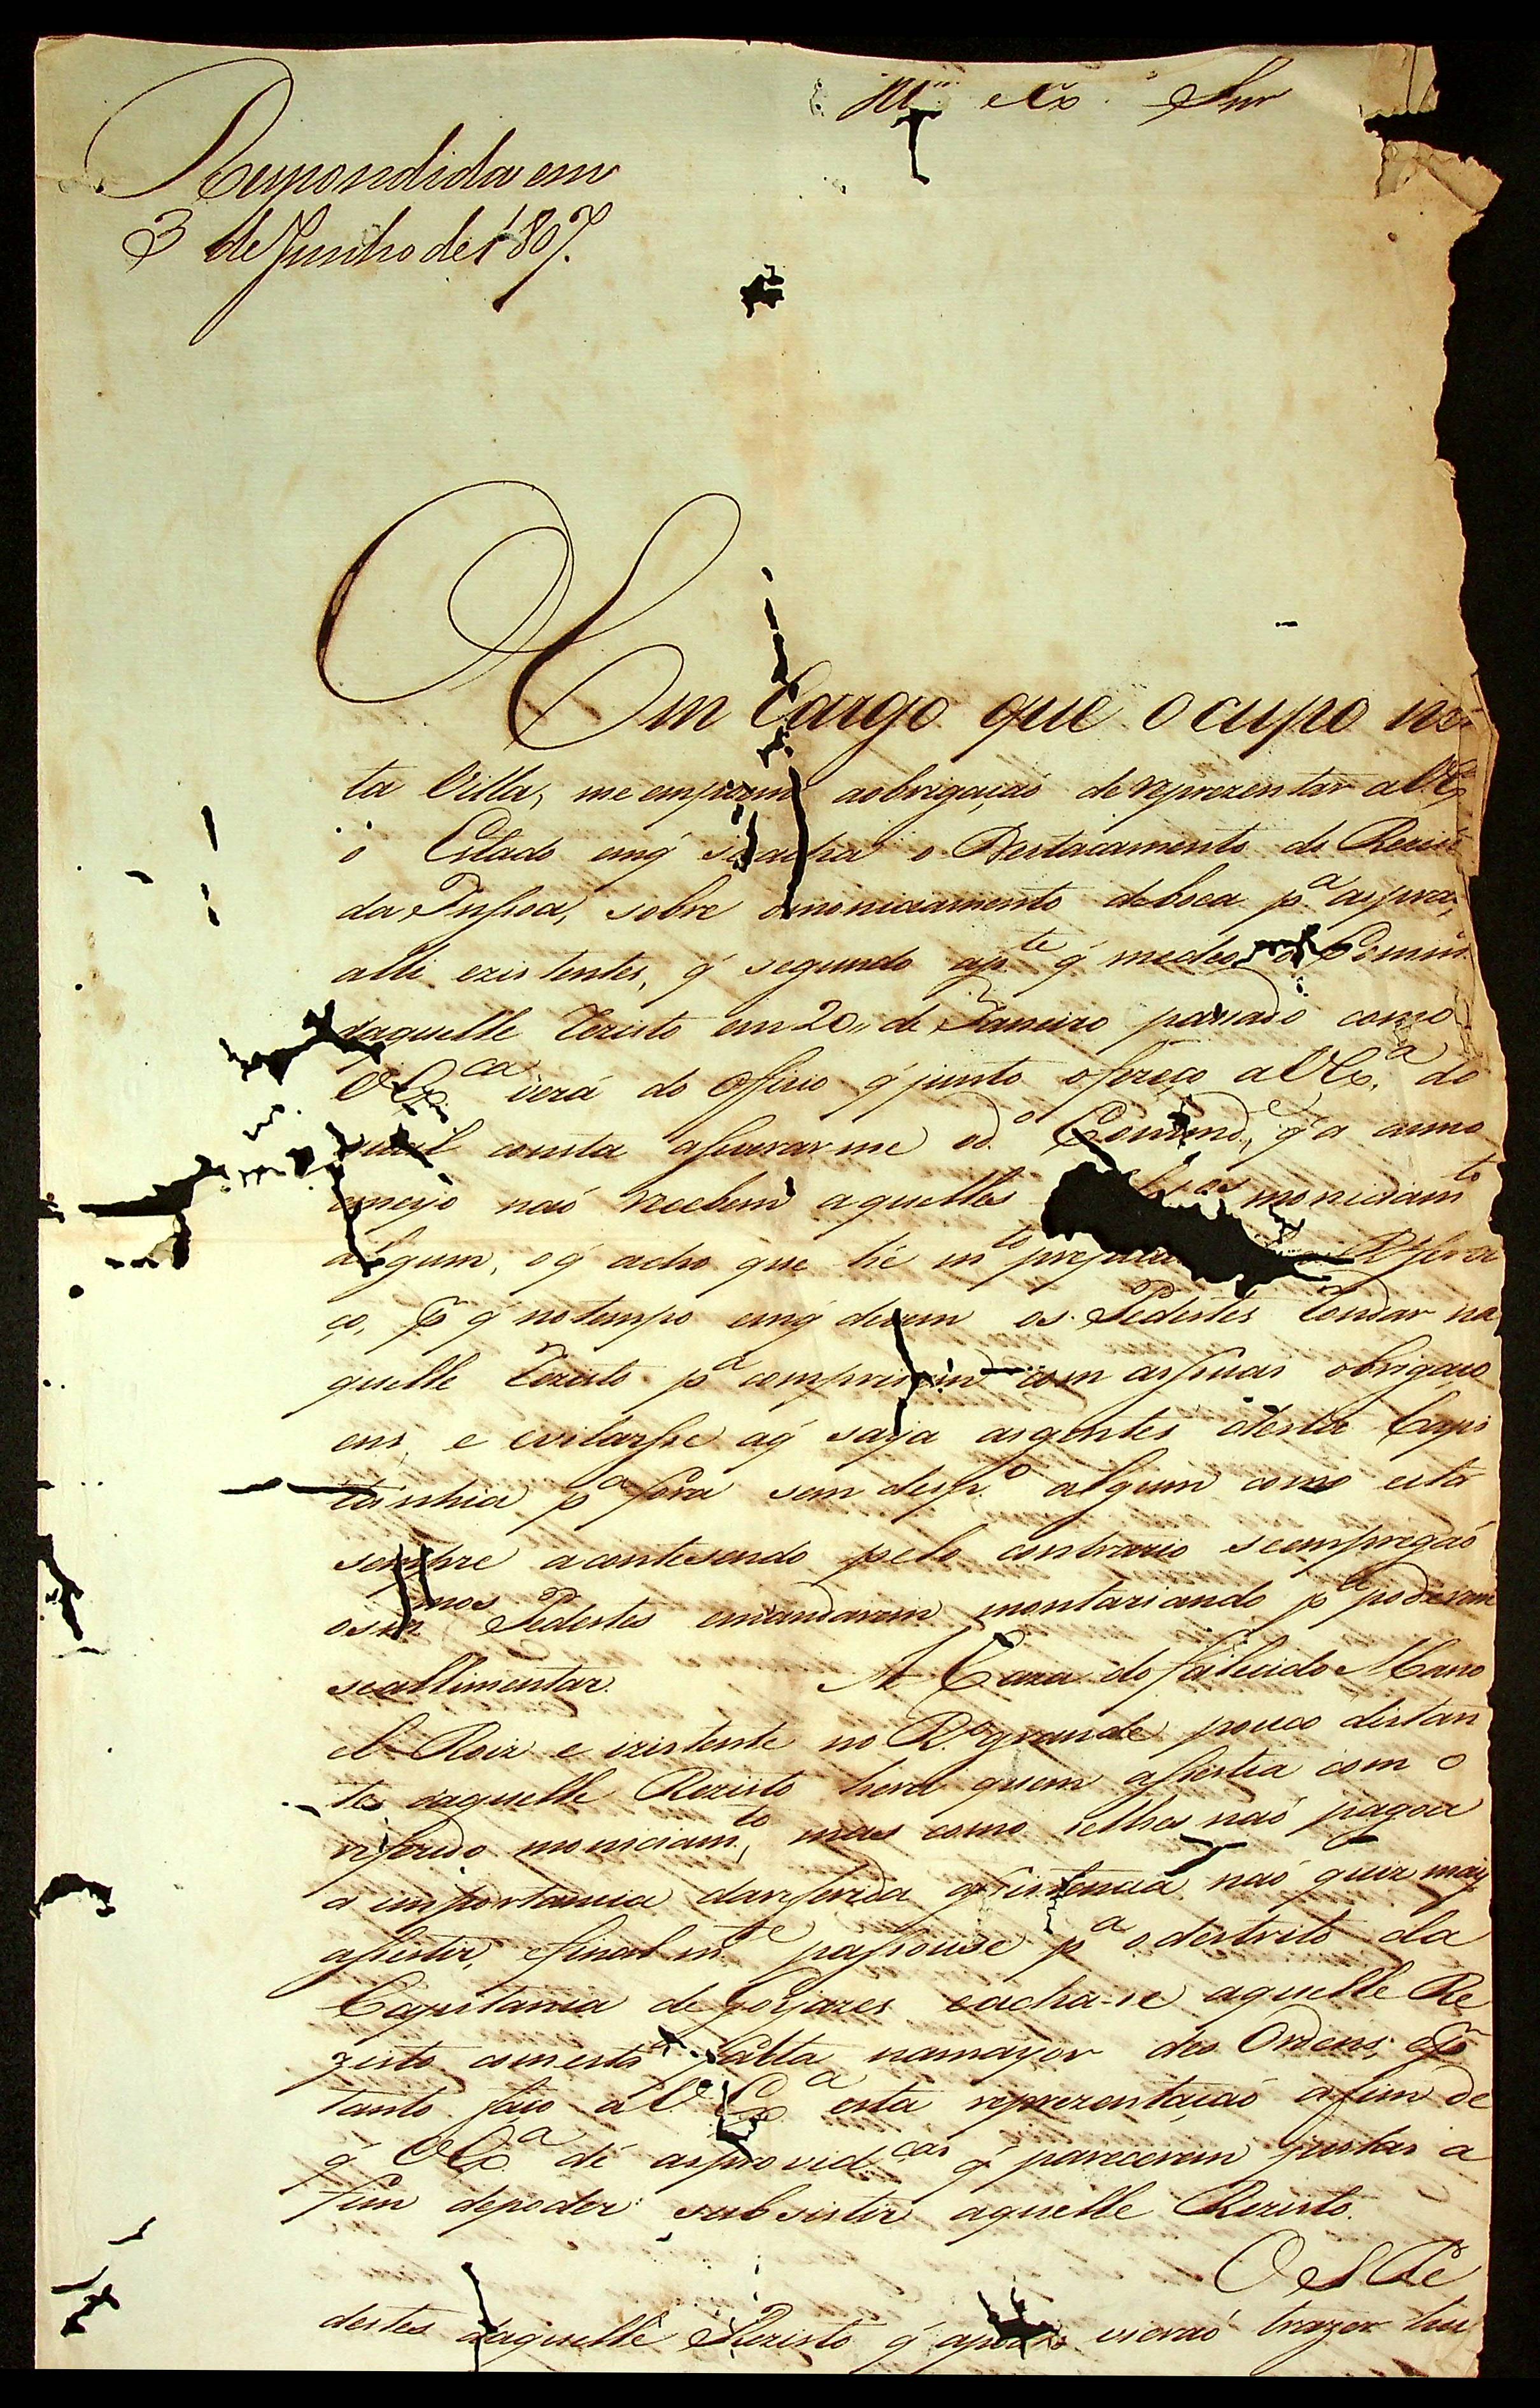 Ill.mo e Ex.mo Snr
Respondida em
3 de Junho de 1807.
Em Cargo que ocupo nés
ta Villa, me empoem aobrigaçaõ de reprezentar aVEx
o Estado emq' se acha o Destacamento do Rezisto
da Insoa, sobre omoniciamento deboca p.a aspraças
alli existentes, q' segundo ap.te q' medeo o Comm
daquelle Rezisto em 20,, de Janeiro passado como
VEx.ca verá do Officio q' junto ofereço aVEx.a do
qual consta assuerarme od.o Comend.e, q' a anno
emeyo naõ recebem aquelles moniciam.to
algum, oq' acho que hé m.to R.l servi
ço, p q' notempo emq' devem os Pedestes Rondar na
quelle Rezisto p.a comprirem com assuas obrigaco
ens, e evitarsse aq' saya asgentes desta Capi
tainhia p.a fora sem desp.o algum como está
sempre acontesendo pelo contrario seempregaõ
osm.mos Pedestes emandarem montariando p.a poderem
seallimentar. A Caza do falecido Mano
el Roiz e izistente no R.o grande pouco distan
te daquelle Rezisto hera quem assestia com o
referido moniciam.to, mas como selhes naõ pagoa
a emportancia darefereda assistencia naõ quiz mais
assestir, efinalm.te passouse p.a odestrito da
Capitania de Goyazes eacha-se aquelle Re
zisto comesta falta namayor das Ordens, epor
tanto faço aVEx.a esta reprezentaçaõ afim de
q' VEx.a dé asprovid.cas q' parecerem justas a
fim depoder subsistir aquelle Rezisto.
Os Pe
destes daquelle Rezisto q' vieraõ trazer hu